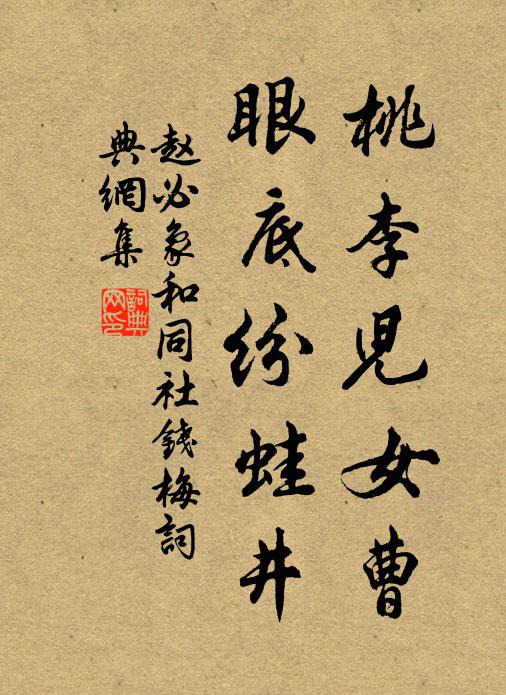 桃李兒女曹
眼底紛蛙井
赵必象和同社錢梅詞
典網集
詞典網印